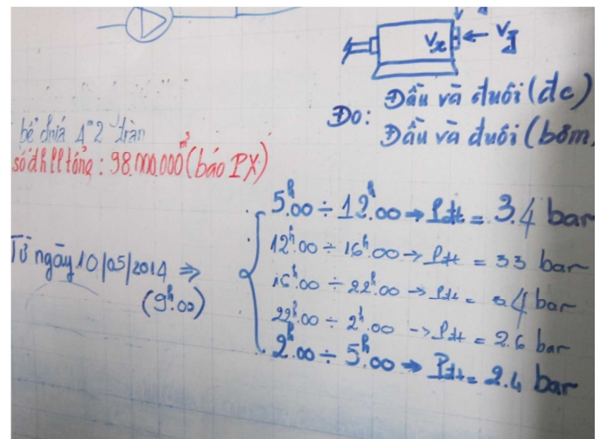 Vx ← VJ
Đo: Đầu và đuôi (đc)
Đầu và đuôi (bơm)
bể chứa 4m2 tràn
số đh ll tổng: 98.000.000 m3 (báo PX)
Từ ngày 10/05/2014 ⇒
(9h.00)
5h.00 ÷ 12h.00 → Pđt = 3.4 bar
12h.00 ÷ 16h.00 → Pđt = 33 bar
16h.00 ÷ 22h.00 → Pđt = 4 bar
22h.00 ÷ 2h.00 → Pđt = 2.6 bar
2h.00 ÷ 5h.00 → Pđt = 2.4 bar